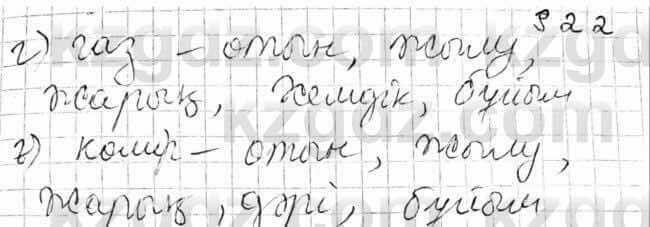 922
г) газ – отын, жылу,
жарық, жемдік, бұйым
ғ) көмір – отын, жылу,
жарық, дәрі, бұйым